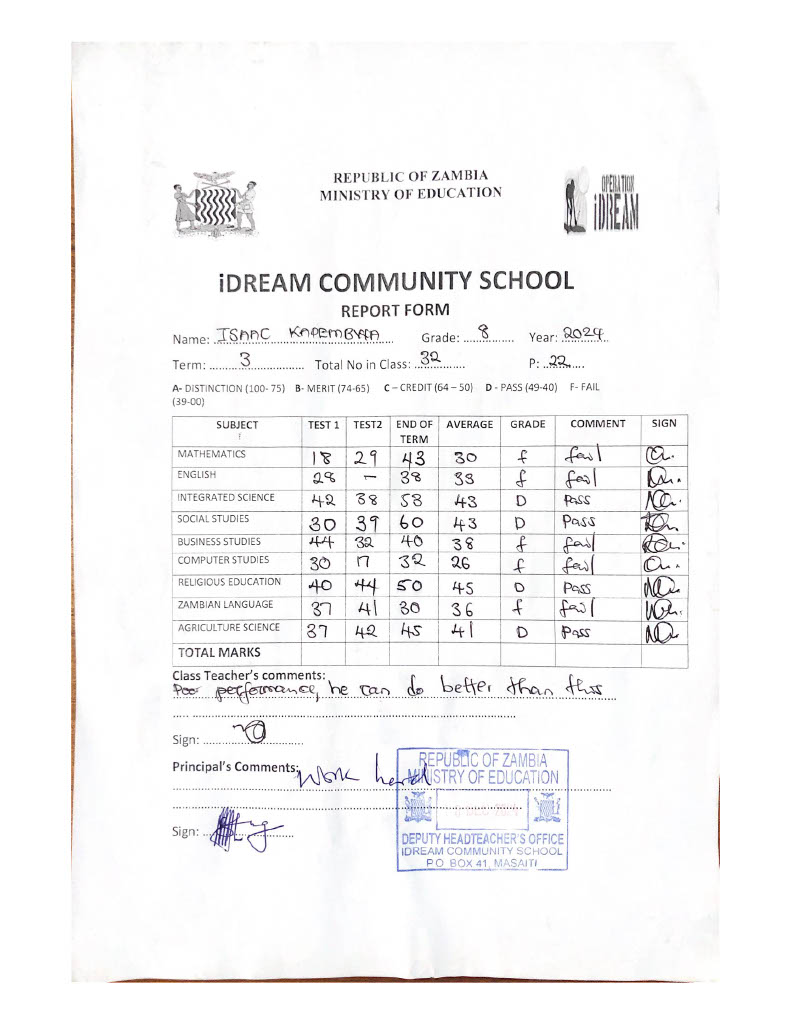 REPUBLIC OF ZAMBIA
MINISTRY OF EDUCATION
OPERATION
iDREAM
iDREAM COMMUNITY SCHOOL
REPORT FORM
Name: ISAAC KAPEMBWA Grade: 8 Year: 2024
Term: 3 Total No in Class: 32 P: 22
A- DISTINCTION (100- 75) B- MERIT (74-65) C – CREDIT (64 – 50) D - PASS (49-40) F- FAIL
(39-00)
SUBJECT TEST 1 TEST2 END OF TERM AVERAGE GRADE COMMENT SIGN
MATHEMATICS 18 29 43 30 f fail
ENGLISH 28 – 38 33 f fail
INTEGRATED SCIENCE 42 38 53 43 D Pass
SOCIAL STUDIES 30 39 60 43 D Pass
BUSINESS STUDIES 44 32 40 38 f fail
COMPUTER STUDIES 30 17 32 26 f fail
RELIGIOUS EDUCATION 40 44 50 45 D Pass
ZAMBIAN LANGUAGE 37 41 30 36 f fail
AGRICULTURE SCIENCE 37 42 45 41 D Pass
TOTAL MARKS
Class Teacher's comments:
Poor performance, he can do better than this
Sign:
Principal's Comments: Work hard
Sign:
REPUBLIC OF ZAMBIA
MINISTRY OF EDUCATION
DEPUTY HEADTEACHER'S OFFICE
IDREAM COMMUNITY SCHOOL
P.O. BOX 41, MASAITI